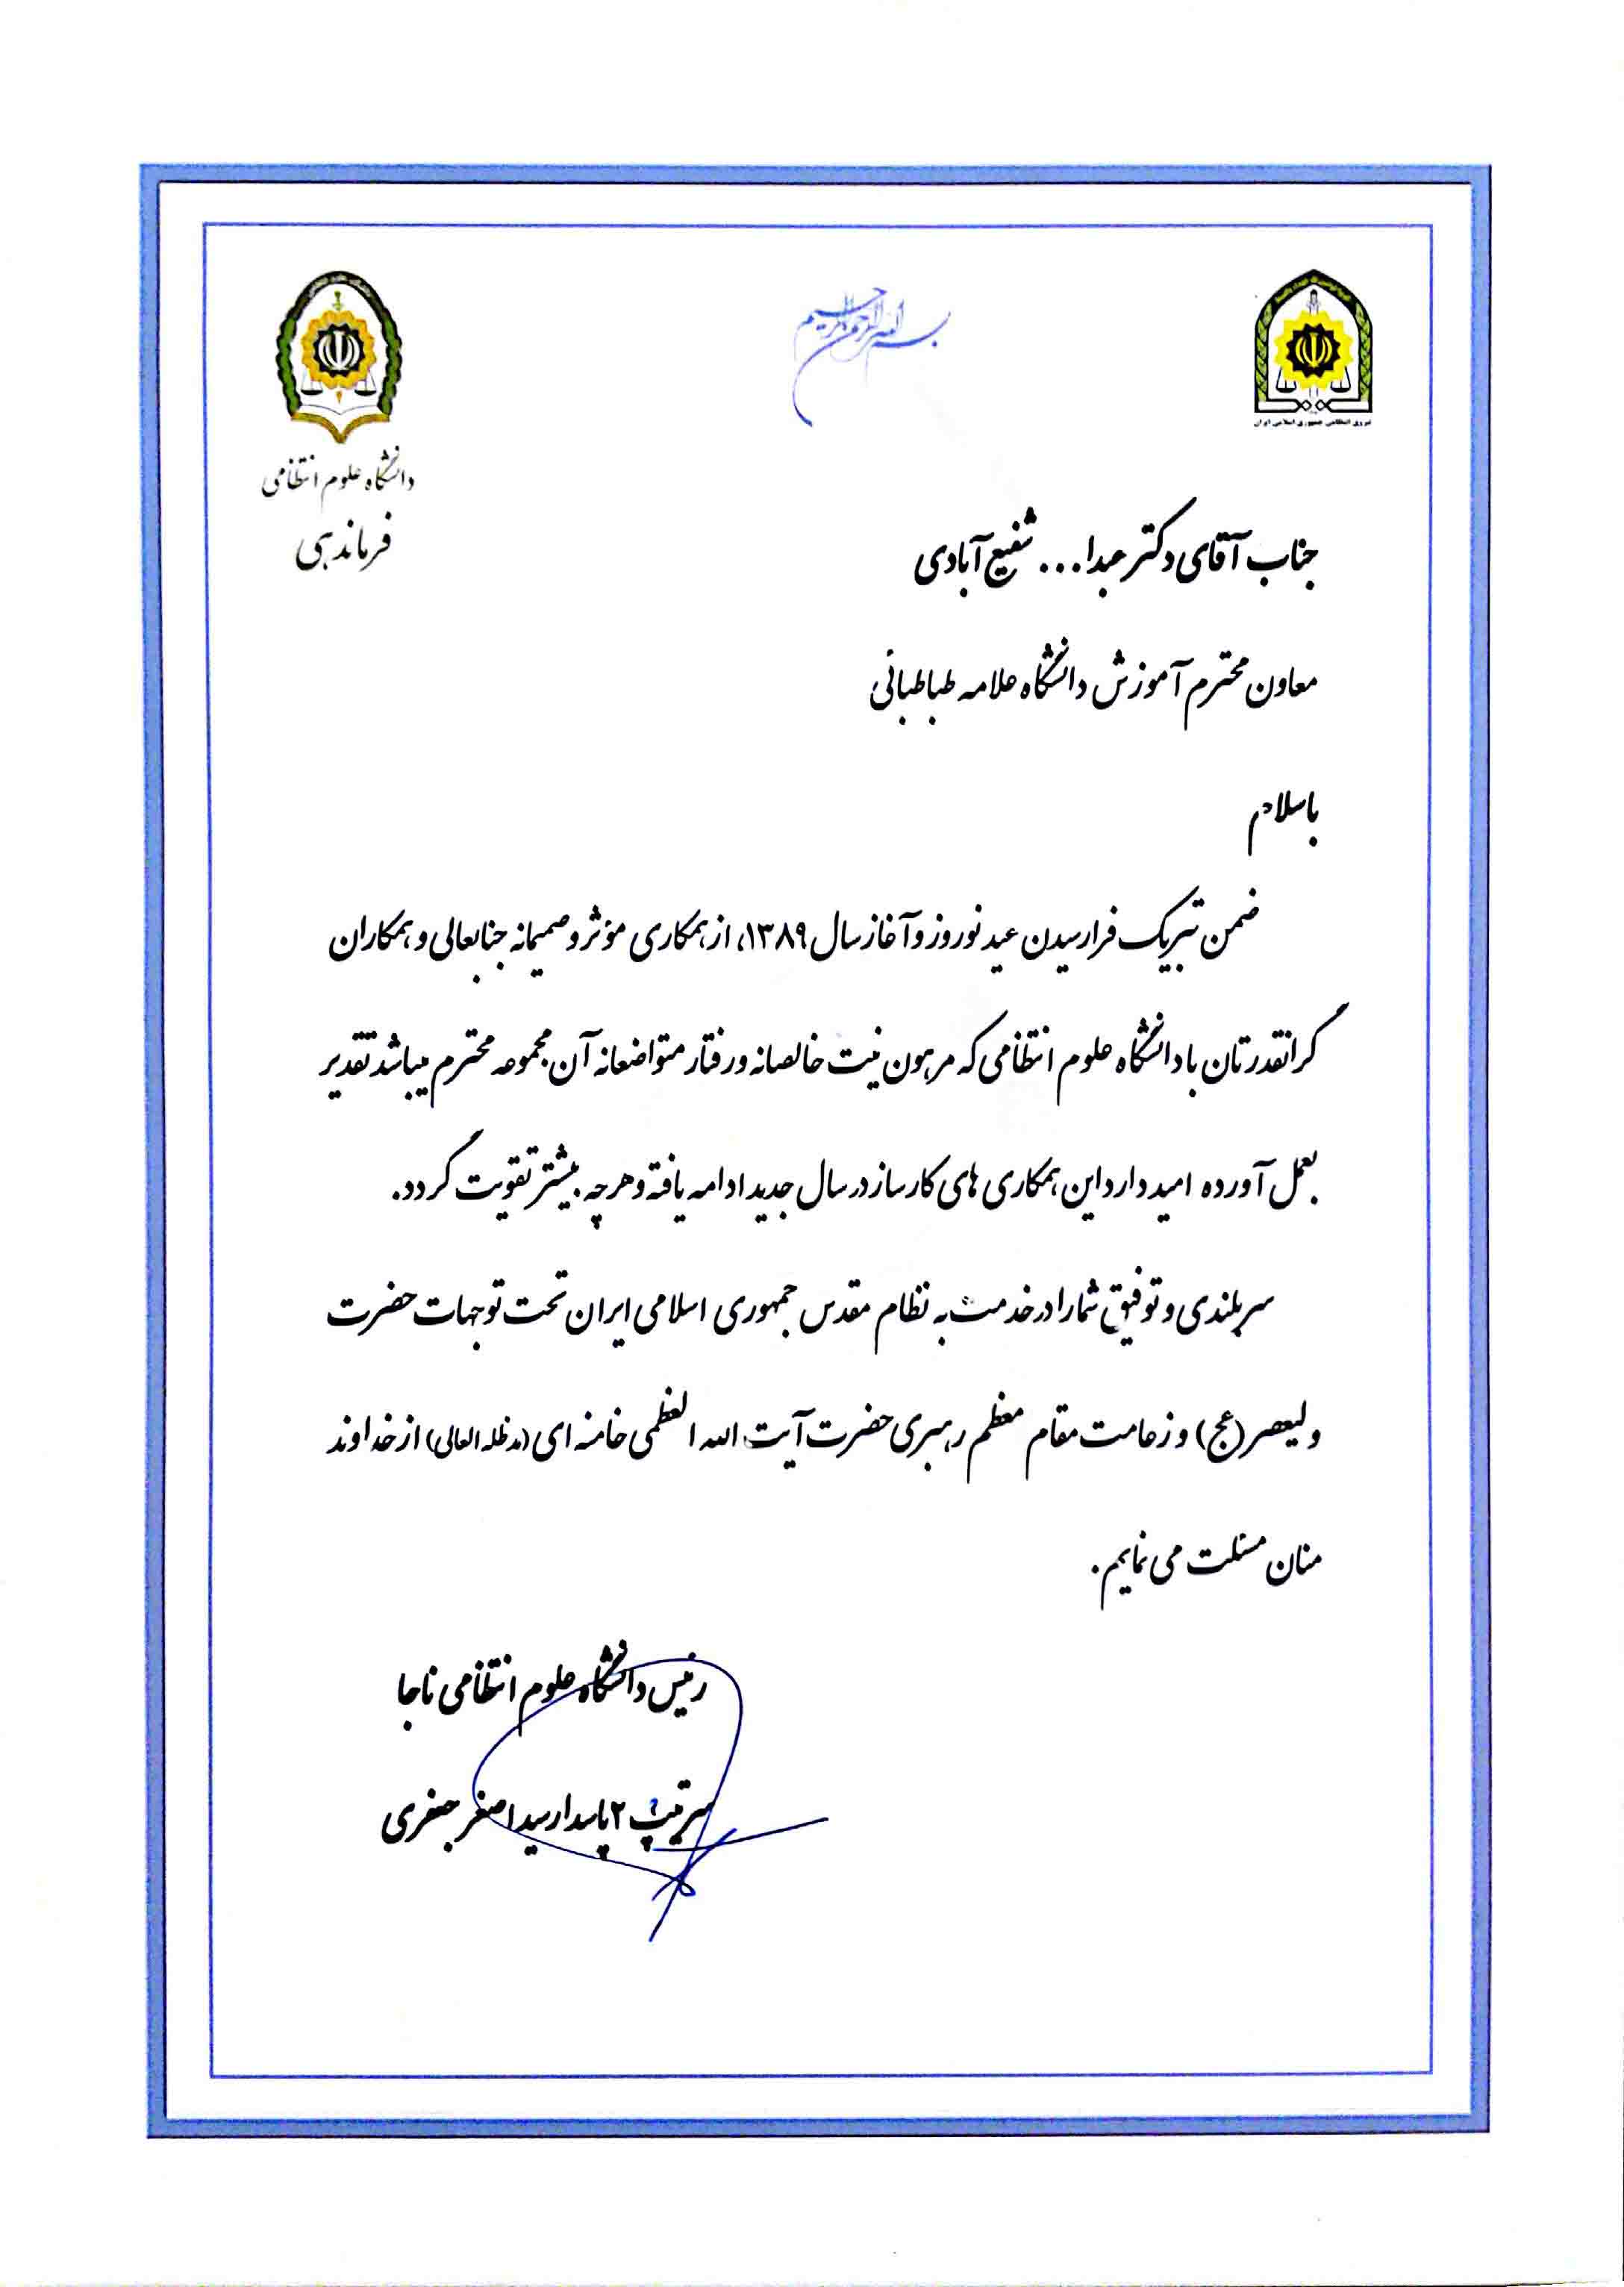 بسم الله الرحمن الرحیم
نیروی انتظامی جمهوری اسلامی ایران
دانشگاه علوم انتظامی
فرماندهی
جناب آقای دکتر عبدا... شفیع آبادی
معاون محترم آموزش دانشگاه علامه طباطبائی
باسلام
ضمن تبریک فرارسیدن عید نوروز و آغاز سال ۱۳۸۹، از همکاری مؤثر و صمیمانه جنابعالی و همکاران
گرانقدرتان با دانشگاه علوم انتظامی که مرهون نیت خالصانه و رفتار متواضعانه آن مجموعه محترم میباشد تقدیر
بعمل آورده امید دارد این همکاری های کارساز در سال جدید ادامه یافته و هرچه بیشتر تقویت گردد.
سربلندی و توفیق شما را در خدمت به نظام مقدس جمهوری اسلامی ایران تحت توجهات حضرت
ولیعصر (عج) و زعامت مقام معظم رهبری حضرت آیت الله العظمی خامنه ای (مدظله العالی) از خداوند
منان مسئلت می نمایم.
رئیس دانشگاه علوم انتظامی ناجا
سرتیپ ۲ پاسدار سید اصغر جعفری